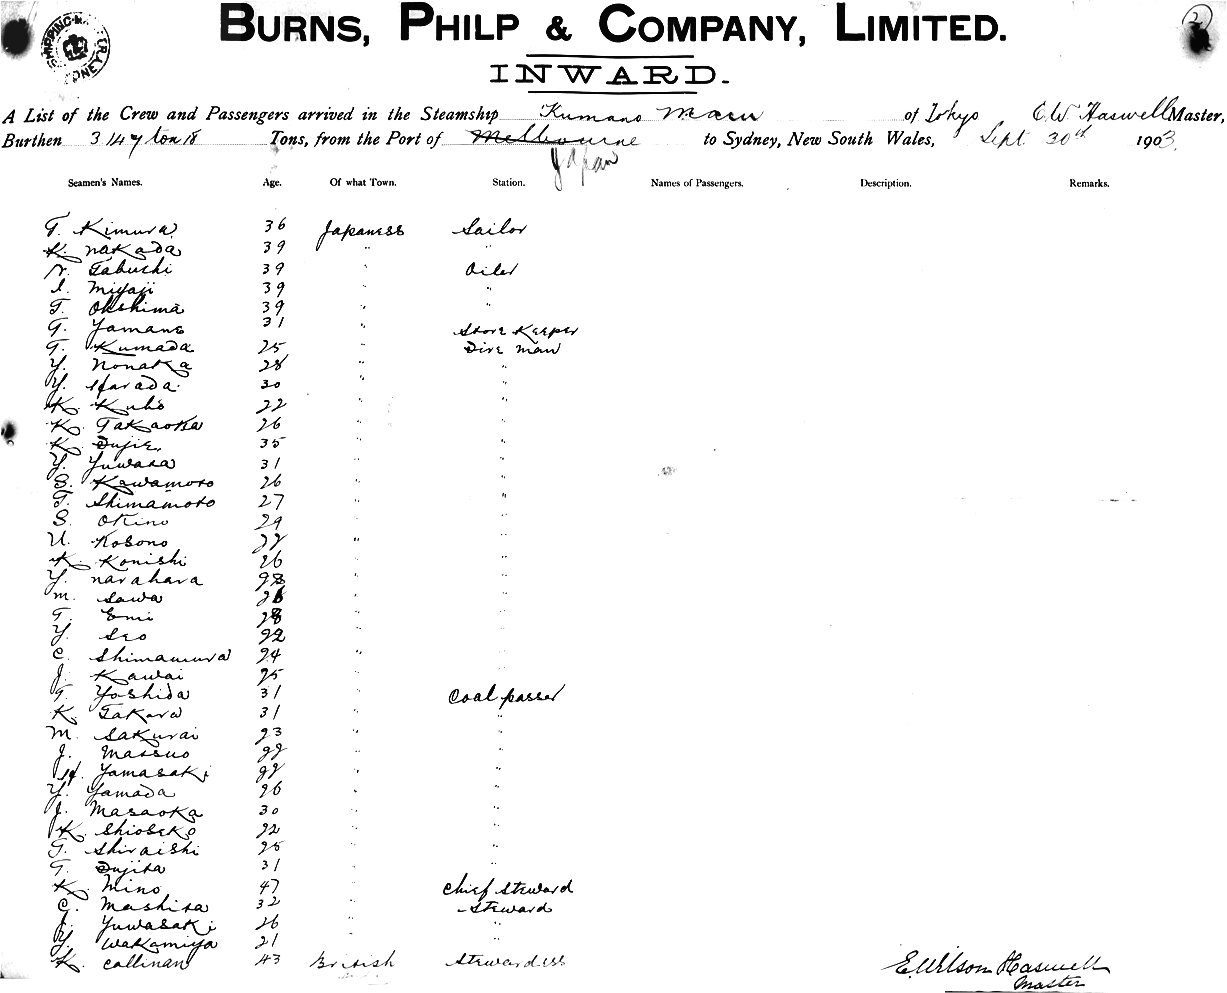 BURNS, PHILP & COMPANY, LIMITED.
INWARD.
A List of the Crew and Passengers arrived in the Steamship Kumano Maru of Tokyo E.W. Haswell Master,
Burthen 3147 tons Tons, from the Port of Melbourne to Sydney, New South Wales, Sept 30th 1903.
Japan
Seamen's Names. Age. Of what Town. Station. Names of Passengers. Description. Remarks.
T. Kimura 36 Japanese Sailor
K. Nakada 39 " "
N. Tabuchi 39 " Oiler
I. Miyaji 39 " "
T. Okshima 39 " "
T. Yamane 31 " Store Keeper
T. Kumada 25 " Fire man
Y. Nonaka 28 " "
Y. Harada 30 " "
K. Kubo 22 " "
K. Takaoka 26 " "
K. Fujie 35 " "
Y. Yuwasa 31 " "
S. Kawamoto 26 " "
T. Shimamoto 27 " "
S. Okino 29 " "
U. Kosono 22 " "
K. Konishi 26 " "
Y. Narahara 23 " "
M. Sawa 26 " "
T. Emi 28 " "
Y. Seo 22 " "
C. Shimamura 24 " "
J. Kawai 25 "
T. Yoshida 31 " Coal passer
K. Takara 31 " "
M. Sakurai 23 " "
J. Matsuo 22 " "
H. Yamasaki 22 " "
Y. Yamada 26 " "
J. Masaoka 30 " "
K. Shioseko 22 " "
T. Shiraishi 25 " "
T. Fujita 31 " "
K. Mino 47 " Chief Steward
C. Mashita 32 " Steward
J. Yuwasaki 26 " "
Y. Wakamiya 21 " "
K. Callinan 43 British Stewardess
E. Wilson Haswell
Master